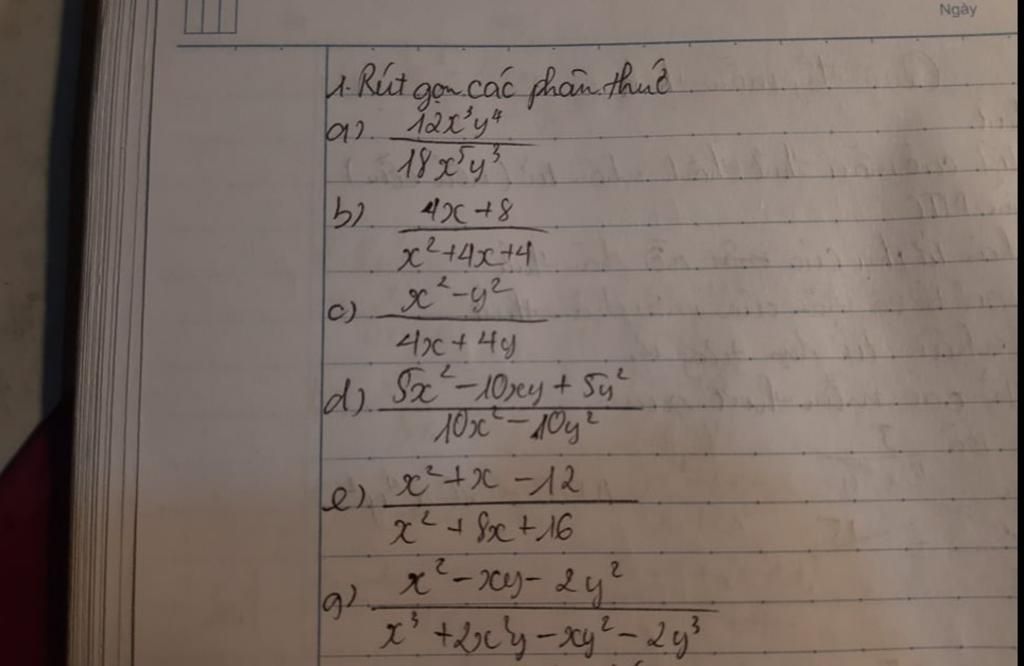 Ngày
1. Rút gọn các phân thức
a) 12x³y⁴ / 18x⁵y³
b) 4x + 8 / x² + 4x + 4
c) x² - y² / 4x + 4y
d) 5x² - 10xy + 5y² / 10x² - 10y²
e) x² + x - 12 / x² + 8x + 16
g) x² - xy - 2y² / x³ + 2x²y - xy² - 2y³